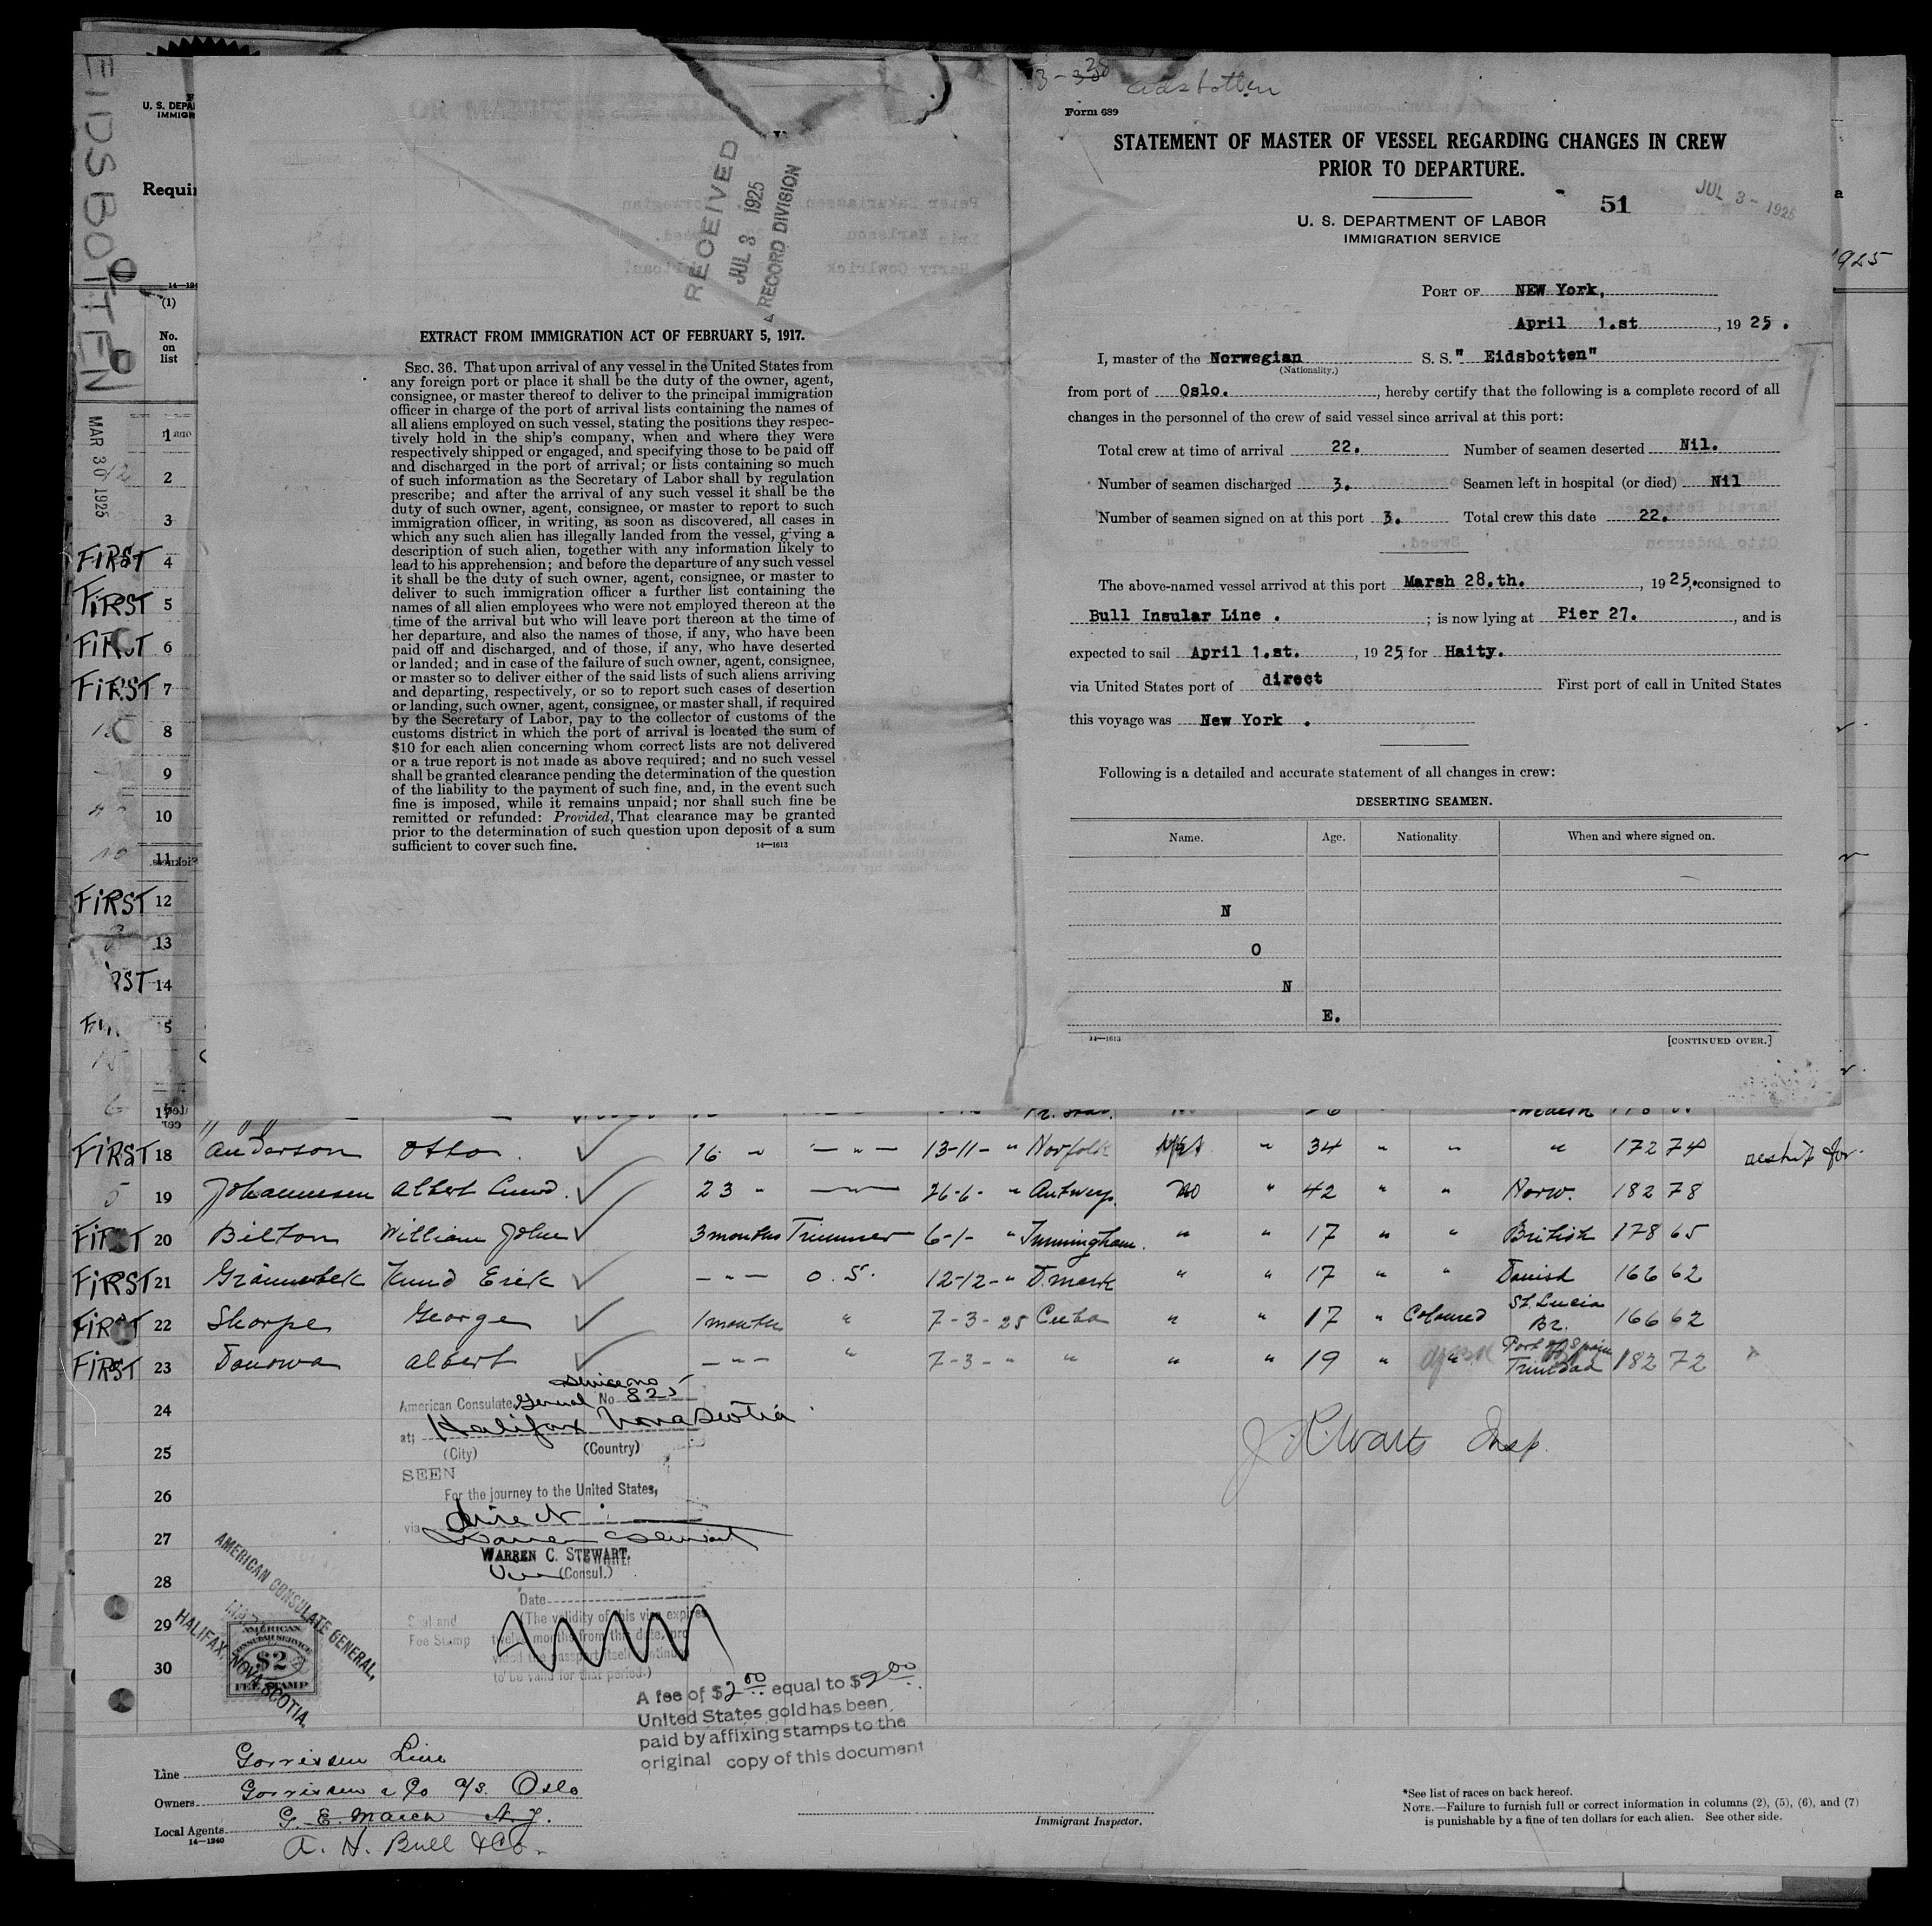 EIDSBOTTEN
U. S. DEPA
IMMIGR
Requir
(1)
No.
on
list
MAR 30 1925
RECEIVED
JUL 3 1925
RECORD DIVISION
EXTRACT FROM IMMIGRATION ACT OF FEBRUARY 5, 1917.
SEC. 36. That upon arrival of any vessel in the United States from
any foreign port or place it shall be the duty of the owner, agent,
consignee, or master thereof to deliver to the principal immigration
officer in charge of the port of arrival lists containing the names of
all aliens employed on such vessel, stating the positions they respec-
tively hold in the ship's company, when and where they were
respectively shipped or engaged, and specifying those to be paid off
and discharged in the port of arrival; or lists containing so much
of such information as the Secretary of Labor shall by regulation
prescribe; and after the arrival of any such vessel it shall be the
duty of such owner, agent, consignee, or master to report to such
immigration officer, in writing, as soon as discovered, all cases in
which any such alien has illegally landed from the vessel, giving a
description of such alien, together with any information likely to
lead to his apprehension; and before the departure of any such vessel
it shall be the duty of such owner, agent, consignee, or master to
deliver to such immigration officer a further list containing the
names of all alien employees who were not employed thereon at the
time of the arrival but who will leave port thereon at the time of
her departure, and also the names of those, if any, who have been
paid off and discharged, and of those, if any, who have deserted
or landed; and in case of the failure of such owner, agent, consignee,
or master so to deliver either of the said lists of such aliens arriving
and departing, respectively, or so to report such cases of desertion
or landing, such owner, agent, consignee, or master shall, if required
by the Secretary of Labor, pay to the collector of customs of the
customs district in which the port of arrival is located the sum of
$10 for each alien concerning whom correct lists are not delivered
or a true report is not made as above required; and no such vessel
shall be granted clearance pending the determination of the question
of the liability to the payment of such fine, and, in the event such
fine is imposed, while it remains unpaid; nor shall such fine be
remitted or refunded: Provided, That clearance may be granted
prior to the determination of such question upon deposit of a sum
sufficient to cover such fine.
14—1613
Eidsbotten
Form 689
STATEMENT OF MASTER OF VESSEL REGARDING CHANGES IN CREW
PRIOR TO DEPARTURE.
51
JUL 3 - 1925
U. S. DEPARTMENT OF LABOR
IMMIGRATION SERVICE
PORT OF NEW York,
April 1.st, 1925.
I, master of the Norwegian S. S. " Eidsbotten"
(Nationality.)
from port of Oslo., hereby certify that the following is a complete record of all
changes in the personnel of the crew of said vessel since arrival at this port:
Total crew at time of arrival 22. Number of seamen deserted Nil.
Number of seamen discharged 3. Seamen left in hospital (or died) Nil
Number of seamen signed on at this port 3. Total crew this date 22.
The above-named vessel arrived at this port Marsh 28.th., 1925, consigned to
Bull Insular Line . ; is now lying at Pier 27. , and is
expected to sail April 1.st. , 1925, for Haity.
via United States port of direct First port of call in United States
this voyage was New York .
Following is a detailed and accurate statement of all changes in crew:
DESERTING SEAMEN.
Name. Age. Nationality. When and where signed on.
N
O
N
E.
14—1613 [CONTINUED OVER.]
1925
1
2
3
FIRST 4
FIRST 5
FIRST 6
FIRST 7
8
9
10
11
FIRST 12
13
RST 14
5
17
FIRST 18 Anderson Otto. 16 " — " — 13-11- " Norfolk " 34 " " " 172 74
5 19 Johannesen Albert Lund. 23 " — " — 26-6- " Antwerp. no " 42 " " Norw. 182 78
FIRST 20 Bilton William John 3 months Trimmer 6-1- " Immingham. " " 17 " " British 178 65
FIRST 21 Knud Erik — " — O. S. 12-12- " D.mark " " 17 " " Danish 166 62
FIRST 22 Sharpe George 1 months " 7-3-25 Cuba " " 17 " Coloured St. Lucia Br. 166 62
FIRST 23 Donowa Albert — " — " 7-3- " " " " 19 " " Port of Spain Trinidad 182 72
24
25
26
27
28
29
30
Service no
American Consulate General No 825
at; Halifax Nova Scotia
(City) (Country)
SEEN
For the journey to the United States,
via direct
Warren C Stewart
WARREN C. STEWART.
Vice (Consul.)
Date
Seal and
Fee Stamp
(The validity of this visa expires
twelve months from this date, pro
vided the passport itself continues
to be valid for that period.)
AMERICAN CONSULATE GENERAL,
HALIFAX, NOVA SCOTIA.
AMERICAN
CONSULAR SERVICE
$2
FEE STAMP
A fee of $2.00 equal to $2.00
United States gold has been
paid by affixing stamps to the
original copy of this document
Insp.
Line Gorrissen Line
Owners Gorrissen & Co a/s. Oslo
Local Agents G. E. March N. Y.
14—1240
A. H. Bull & Co.
Immigrant Inspector.
*See list of races on back hereof.
NOTE.—Failure to furnish full or correct information in columns (2), (5), (6), and (7)
is punishable by a fine of ten dollars for each alien. See other side.